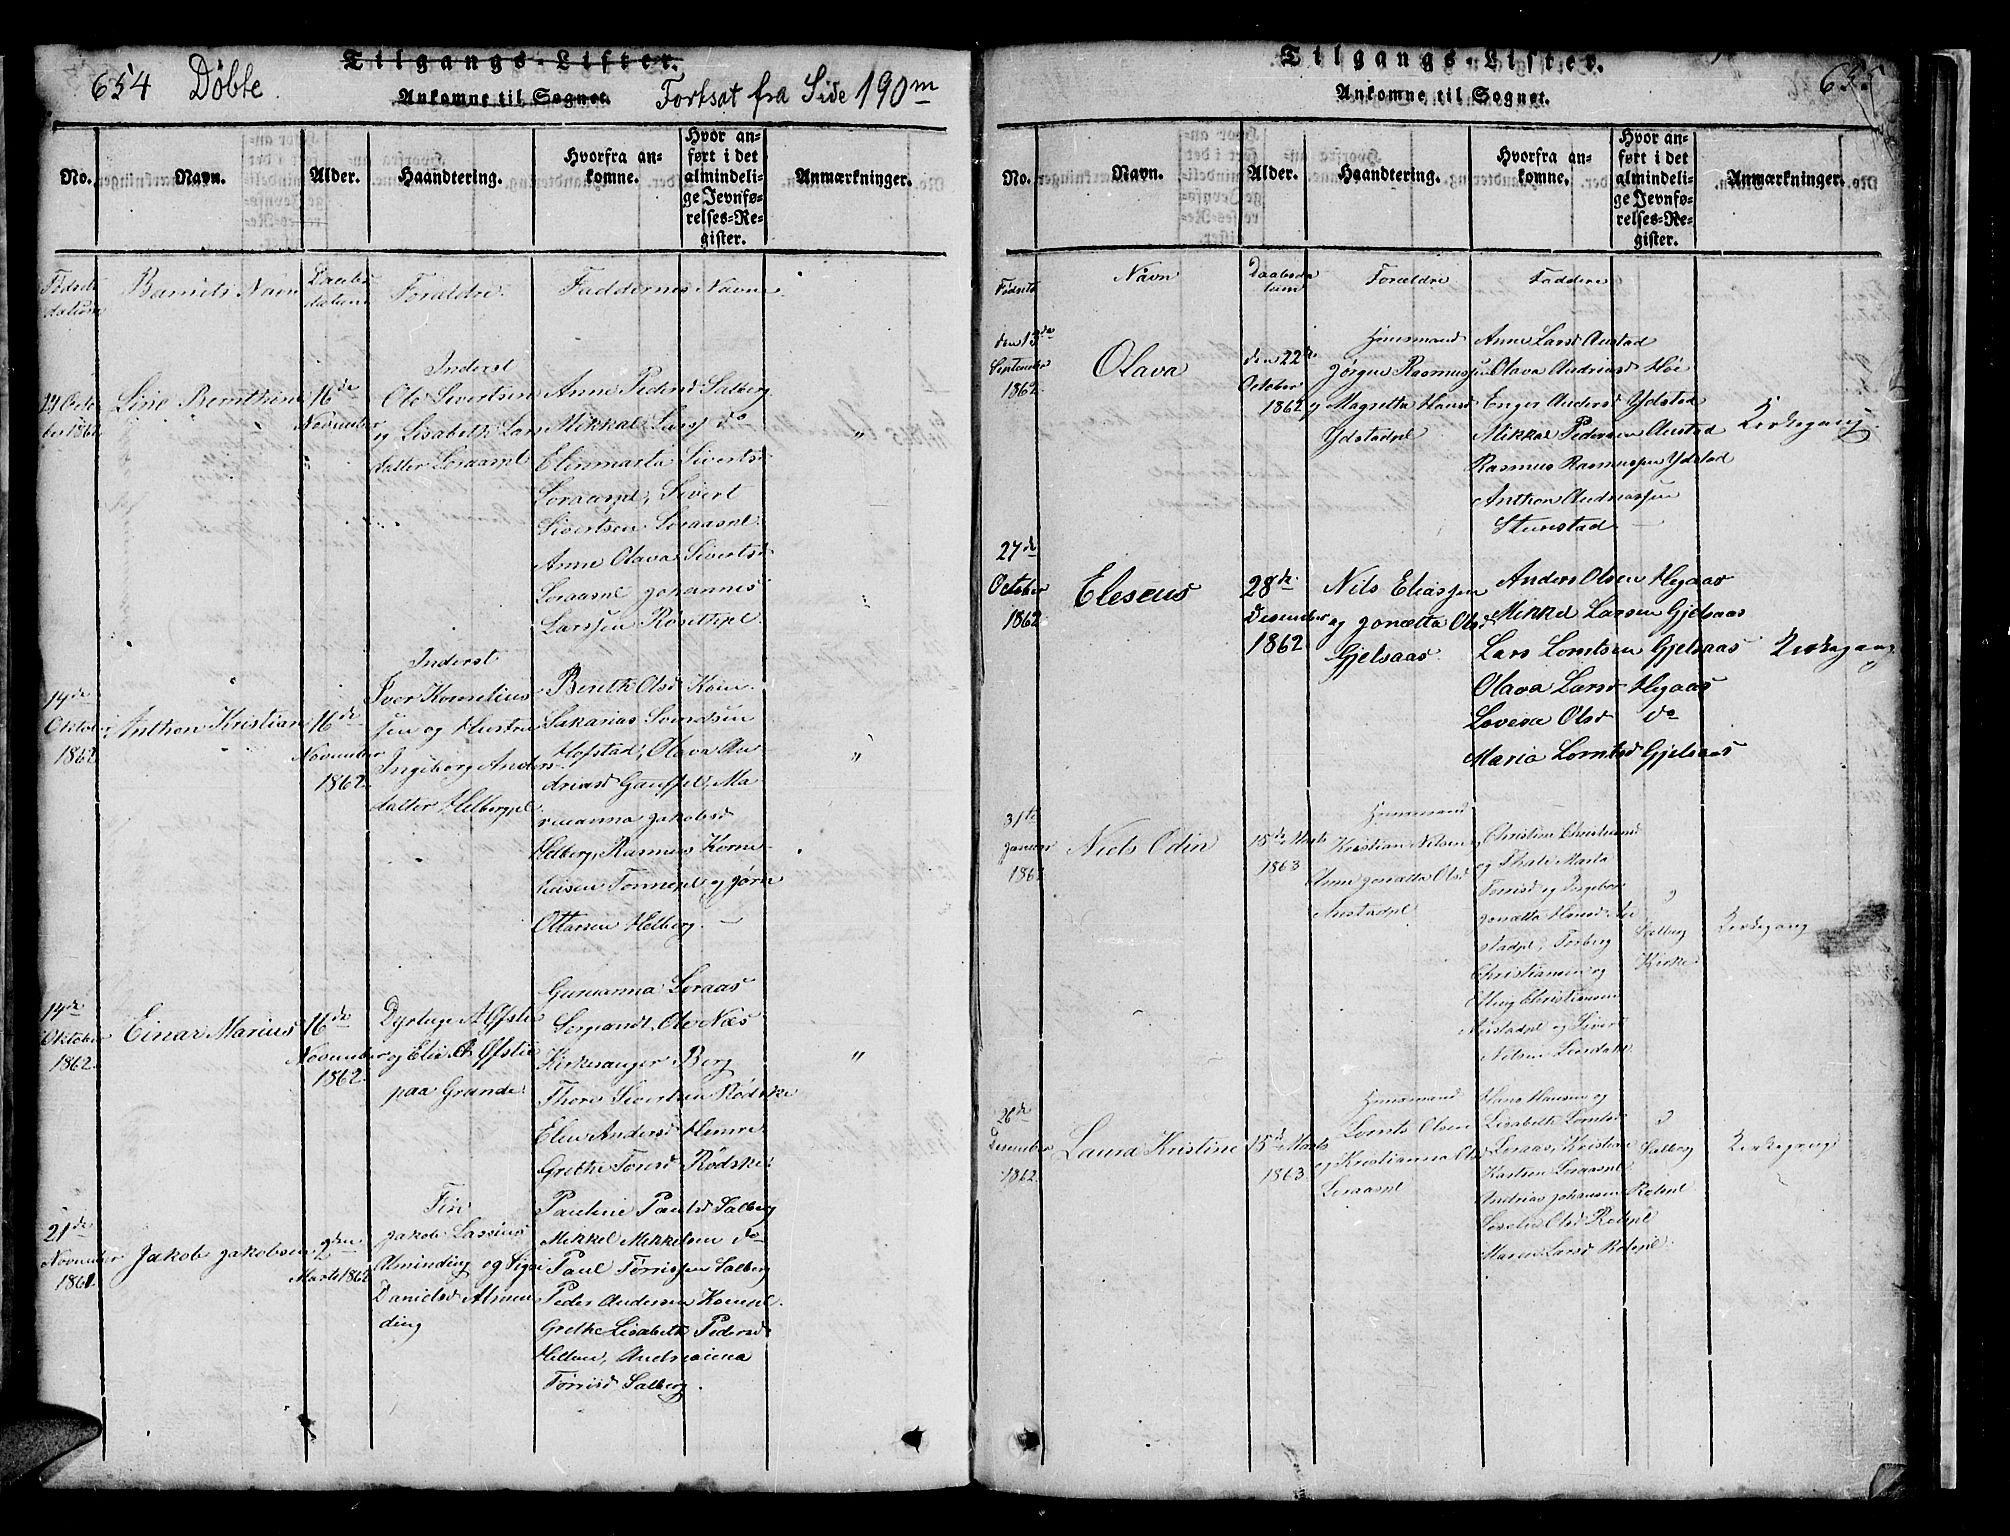 654 Döbte.
Tilgangs-Lister.
Ankomne til Sognet.
Fortsat fra Side 190 m
No.
Navn.
Alder.
Haandtering.
Hvorfra an-
komne.
Hvor an-
ført i det
almindeli-
ge Jevnfø-
relses-Re-
gister.
Anmærkninger.
Födsels
datum
Barnets Navn
Daabs
datum
Forældre.
Faddernes Navne.
Octo
ber 1862
Lise Bernthine
16de
November
Inderst
Ole Sivertsen
og Lisabeth Lars
datter Loraaspl
Anne Pedersd Salberg
Mikkal Larss do
Elenmarta Sivertsd
Loraaspl, Sivert
Sivertsen Loraaspl.
Anne Olava Sivertsd
Loraaspl Johannes
Larssen
"
14de
Oktober
1862
Anthon Kristian
16de
November
1862
Inderst
Iver Kornelius
sen og Hustru
Ingeborg Anders
datter Helbergpl
Bereth Olsd
Sakarias
Hofstad, Olava An
driasd, Ma
rianna Jakobsd
Helberg, Rasmus Korne
liusen og Jörn
Ottarsen Helberg. —
"
14de
Oktober
1862
Einar Marius
16de
November
1862
Dyrlæge
og
paa Grande.
Gurianna Loraas
Ole Næs
Kirkesanger Berg
Thore Sivertsen Rödske
Elen Andersd
Grethe Toresd Rödske.
"
21de
November
1861.
Jakob Jakobsen
9den
Marts 1862
Fin
Jakob Lassius
Alminding og
Danielsd Almen
ding
Pauline Paulsd Salberg
Mikkel Mikkelsen do
Paul Törrissen Salberg
Peder Andersen
Grethe Lisabeth Pedersd
Andrianna
Törrisd Salberg.
Tilgangs-Lister.
655
Ankomne til Sognet.
No.
Navn.
Alder.
Haandtering.
Hvorfra an-
komne.
Hvor an-
ført i det
almindeli-
ge Jevnfø-
relses-Re-
gister.
Anmærkninger.
Födsels
Navn
Daabsda
tum
Forældre
Faddere
den 13de
September
1862.
Olava
den 22de
October
1862
Huusmand
Jörgen Rasmussen
og Magretta Hansd
Ydstadpl
Anne Larsd Austad
Olava Andriasd Höe
Enger Andersd Ydstad
Mikkal Pedersen Austad
Rasmus Rasmussen Ydstad
Anthon Andreassen
Stenstad —
Kirkegang.
27de
October
1862
Eleseus
28de
Desember
1862
Nils Eliassen
og Jonætta Olsd
Gjelsaas
Anders Olsen Hegaas
Mikkel Larsen Gjelsaas
Lars Lorntsen Gjelsaas
Olava Larsd Hegaas
Lovisa Olsd do
Maria Lorntsd Gjelsaas
Kirkegang
31te
Januar
Niels Odin
15de Marts
1863
Huusmand
Kristian Nilsen
Anne Jonætta Olsd
Austadpl
Christine Christiansd
og Thale Marta
Torrisd og Ingebor
Jonætta Hansd Au
stadpl, Torberg
Christiansen og
Christiansen
Austadpl og Sivert
Nilsen
i
Salberg
Kirke
Kirkegang
26de
Desember
1862.
Laura Kristine
15de Marts
1863
Huusmand
Lornts Olsen
og Kristianna Olsd
Loraaspl
Hans Hansen og
Lisabeth Lorntsd
Loraas, Kristian
Karlsen Loraaspl
Andrias Johansen Rotvpl
Olsd Rotvpl
Maren Larsd Rotvpl.
i
Salberg
Kirkegang